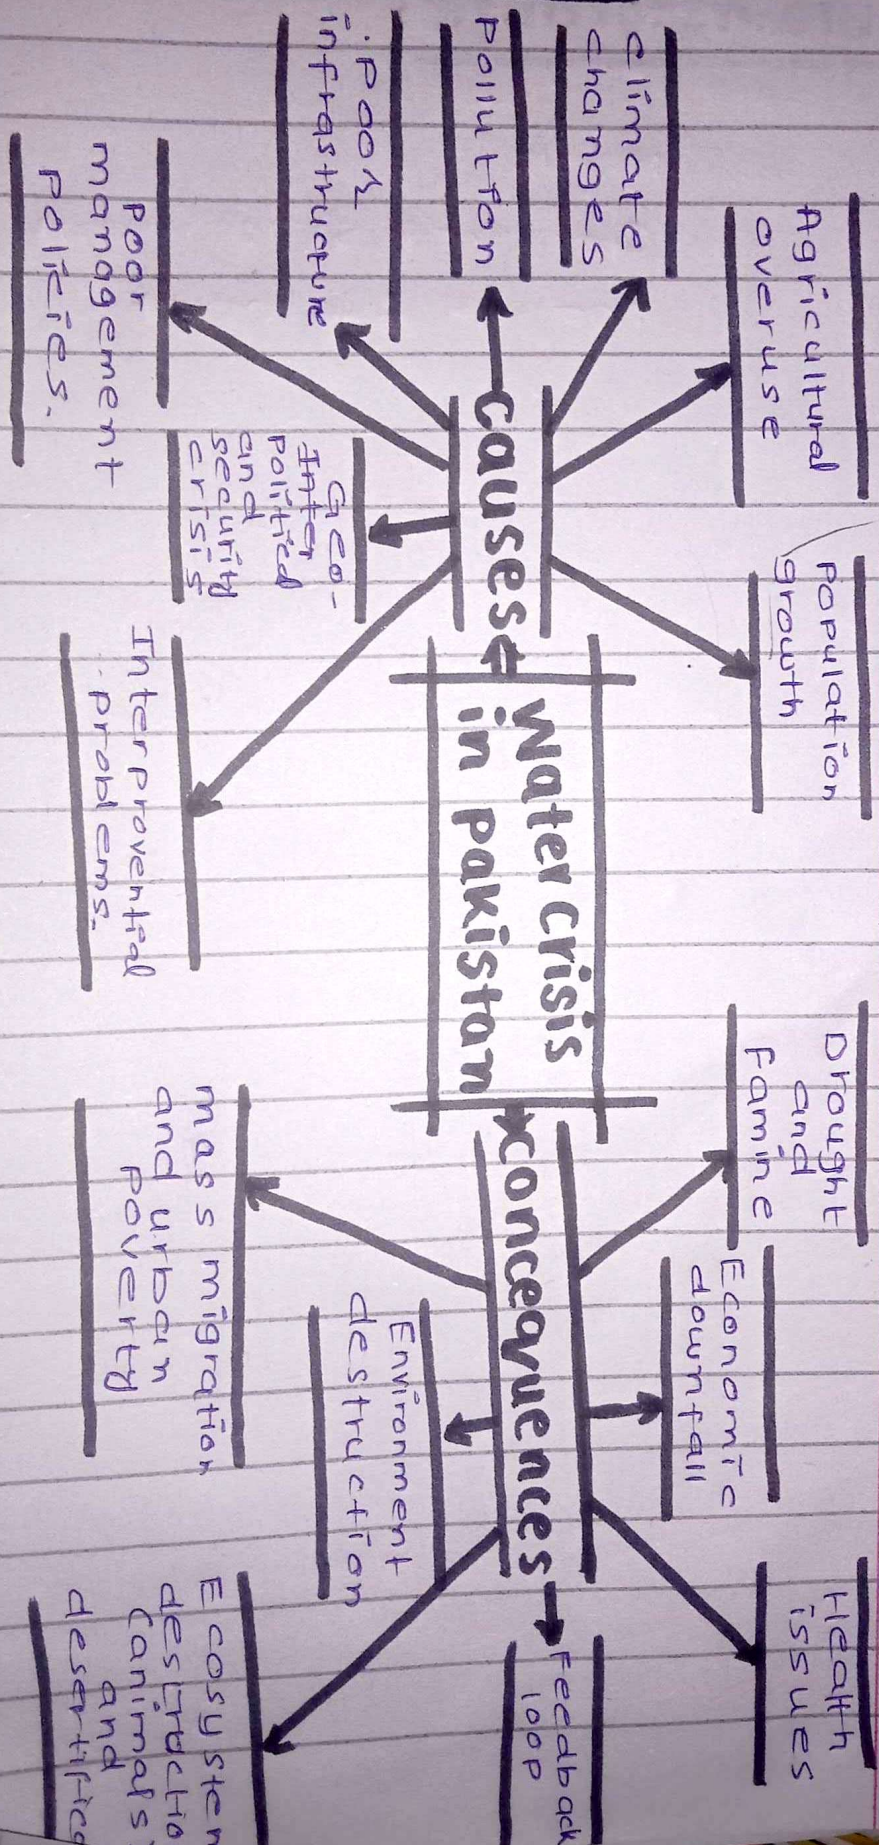 Water crisis
in pakistan
causes
Agricultural
overuse
population
growth
climate
changes
pollution
poor
infrastructure
poor
management
policies.
Geo-
political
Inter
and
security
crisis
Interprovential
problems.
concequences
Drought
and
Famine
Economic
downfall
Health
issues
Feedback
loop
mass migration
and urban
poverty
Environment
destruction
Ecosystem
destructio
(animals
and
desertifica